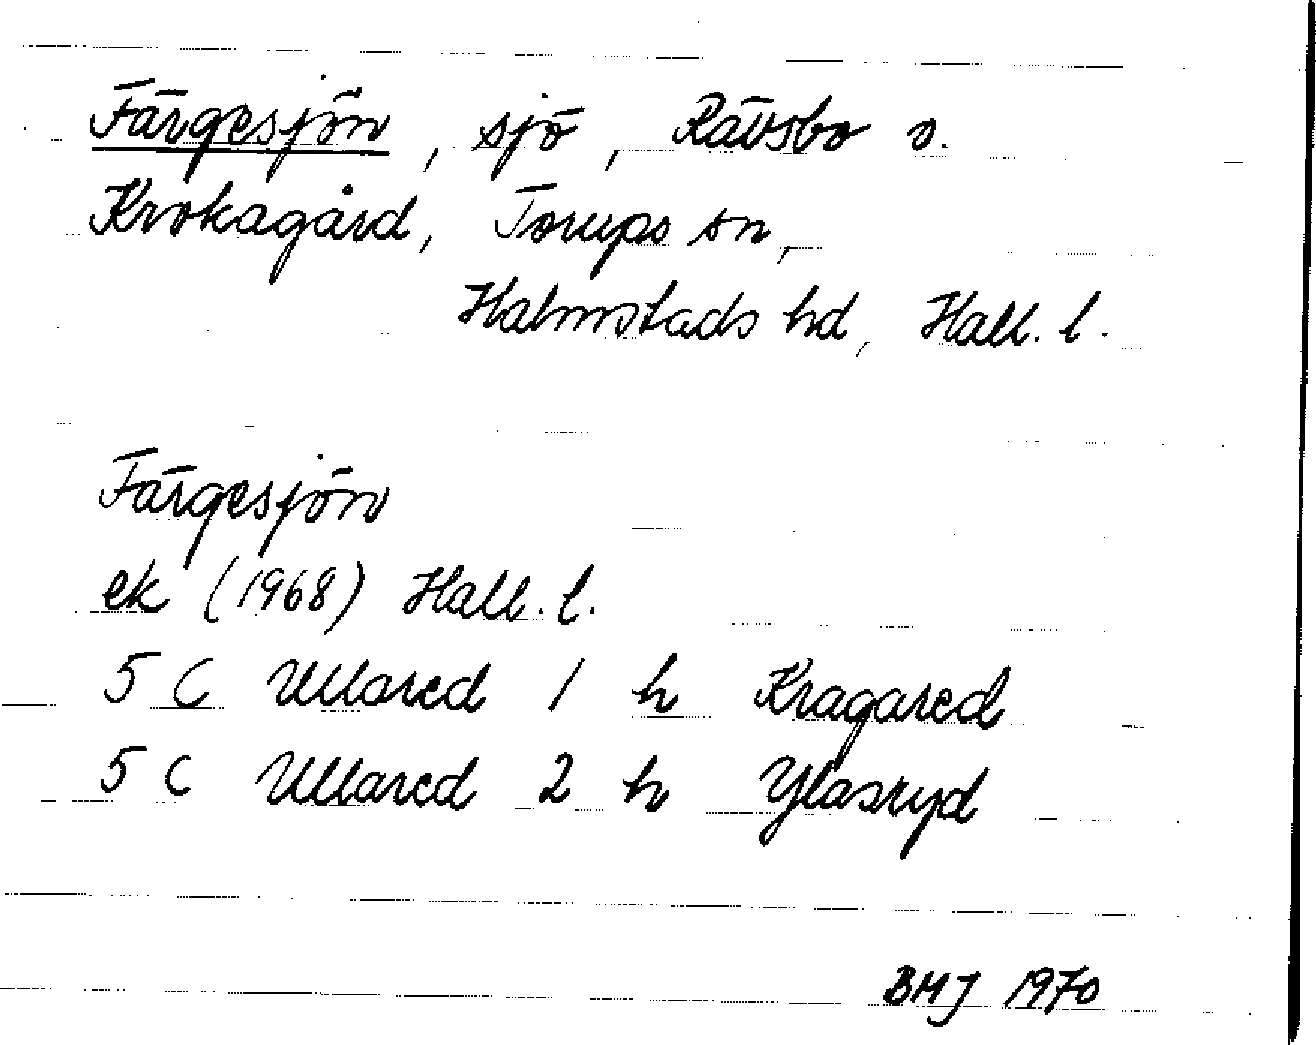 Färgesjön, sjö, Rävsbo o.
Krokagård, Torups sn,
Halmstads hd, Hall. l.
Färgesjön
ek (1968) Hall. l.
5 C Ullared 1 h Kragared
5 C Ullared 2 h Ylasryd
BHJ 1970